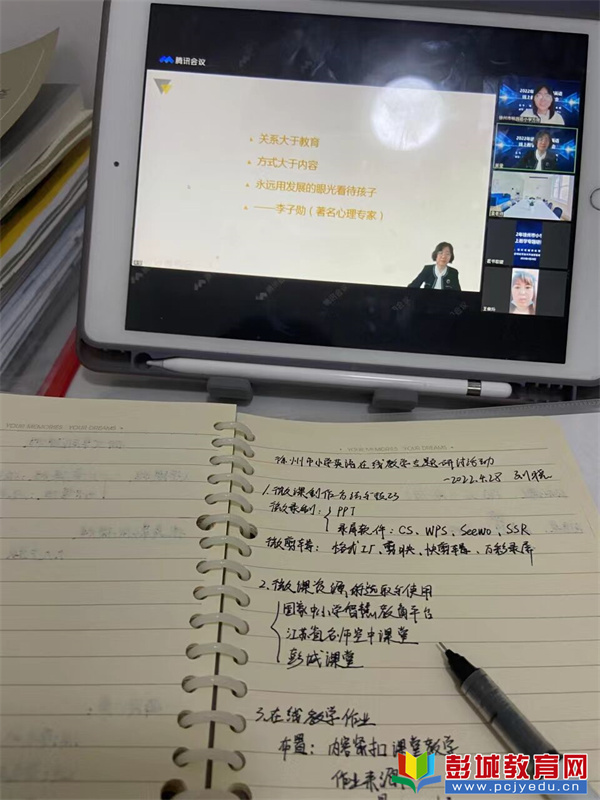 腾讯会议
关系大于教育
方式大于内容
永远用发展的眼光看待孩子
——李子勋（著名心理专家）
YOUR MEMORIES · YOUR DREAMS
YOUR MEMORIES YOUR DREAMS
徐州市小学英语在线教学专题研讨活动
-2022.4.28
1.微课制作方法与技巧
微课录制：PPT
录屏软件：CS、WPS、Seewo、SSR
微剪辑：格式工厂、剪映、快剪辑、万彩录屏
2.微课资源的选取与使用
国家中小学智慧教育平台
江苏省名师空中课堂
彭城课堂
3.在线教学作业
布置：内容紧扣课堂教学
作业来源
彭城教育网
www.pcjyedu.cn